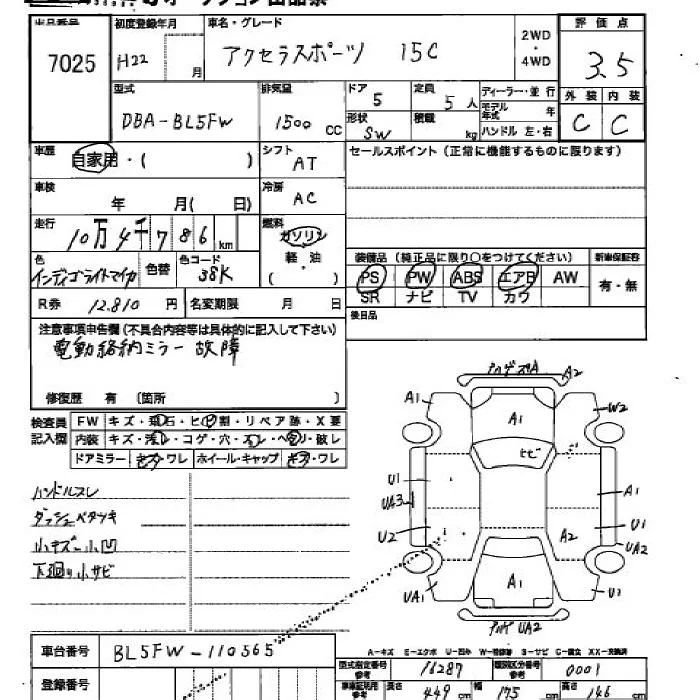 出品番号 初度登録年月 車名・グレード 2WD・4WD 評価点
7025 H22 月 アクセラスポーツ 15C 3.5
型式 排気量 ドア 5 定員 5人 ディーラー・並行 外装 内装
DBA-BL5FW 1500 CC 形状 SW 積載 kg モデル年式 年 ハンドル 左・右 C C
車歴 自家用・( ) シフト AT セールスポイント(正常に機能するものに限ります)
車検 年 月( 日) 冷房 AC
走行 10万4千786 km 燃料 ガソリン 軽・油 ( )
色 インディゴライトマイカ 色替 色コード 38K
装備品(純正品に限り○をつけてください) 新車保証書
PS PW ABS エアB AW 有・無
SR ナビ TV カワ
R券 12,810 円 名変期限 月 日 後日品
注意事項申告欄(不具合内容等は具体的に記入して下さい)
電動格納ミラー故障
修復歴 有 〔箇所 〕
検査員記入欄 FW キズ・飛石・ヒビ割・リペア跡・X要
内装 キズ・汚レ・コゲ・穴・スレ・ヘタリ・破レ
ドアミラー キズ・ワレ ホイール・キャップ キズ・ワレ
ハンドルスレ
ダッシュベタツキ
小キズ小凹
下廻り小サビ
A2
A1 A1 W2
ヒビ
U1 A1
UA3
U2 A2 U1
UA2
UA1 A1 U1
UA2
A-キズ E-エクボ U-凹み W-補修跡 S-サビ C-腐食 XX-交換済
車台番号 BL5FW-110365
登録番号
型式指定番号 参考 16287 類別区分番号 参考 0001
車車証明用 参考 長さ 449 cm 幅 175 cm 高さ 146 cm